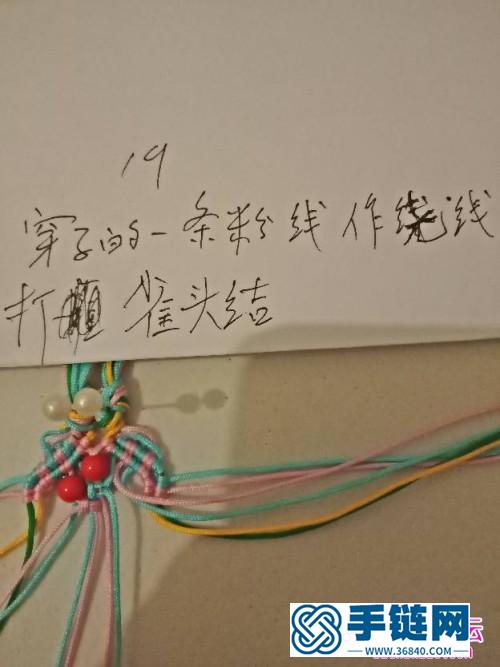 19
穿子的一条粉线作绕线
打 雀头结
坛
手链网
WWW.36840.COM